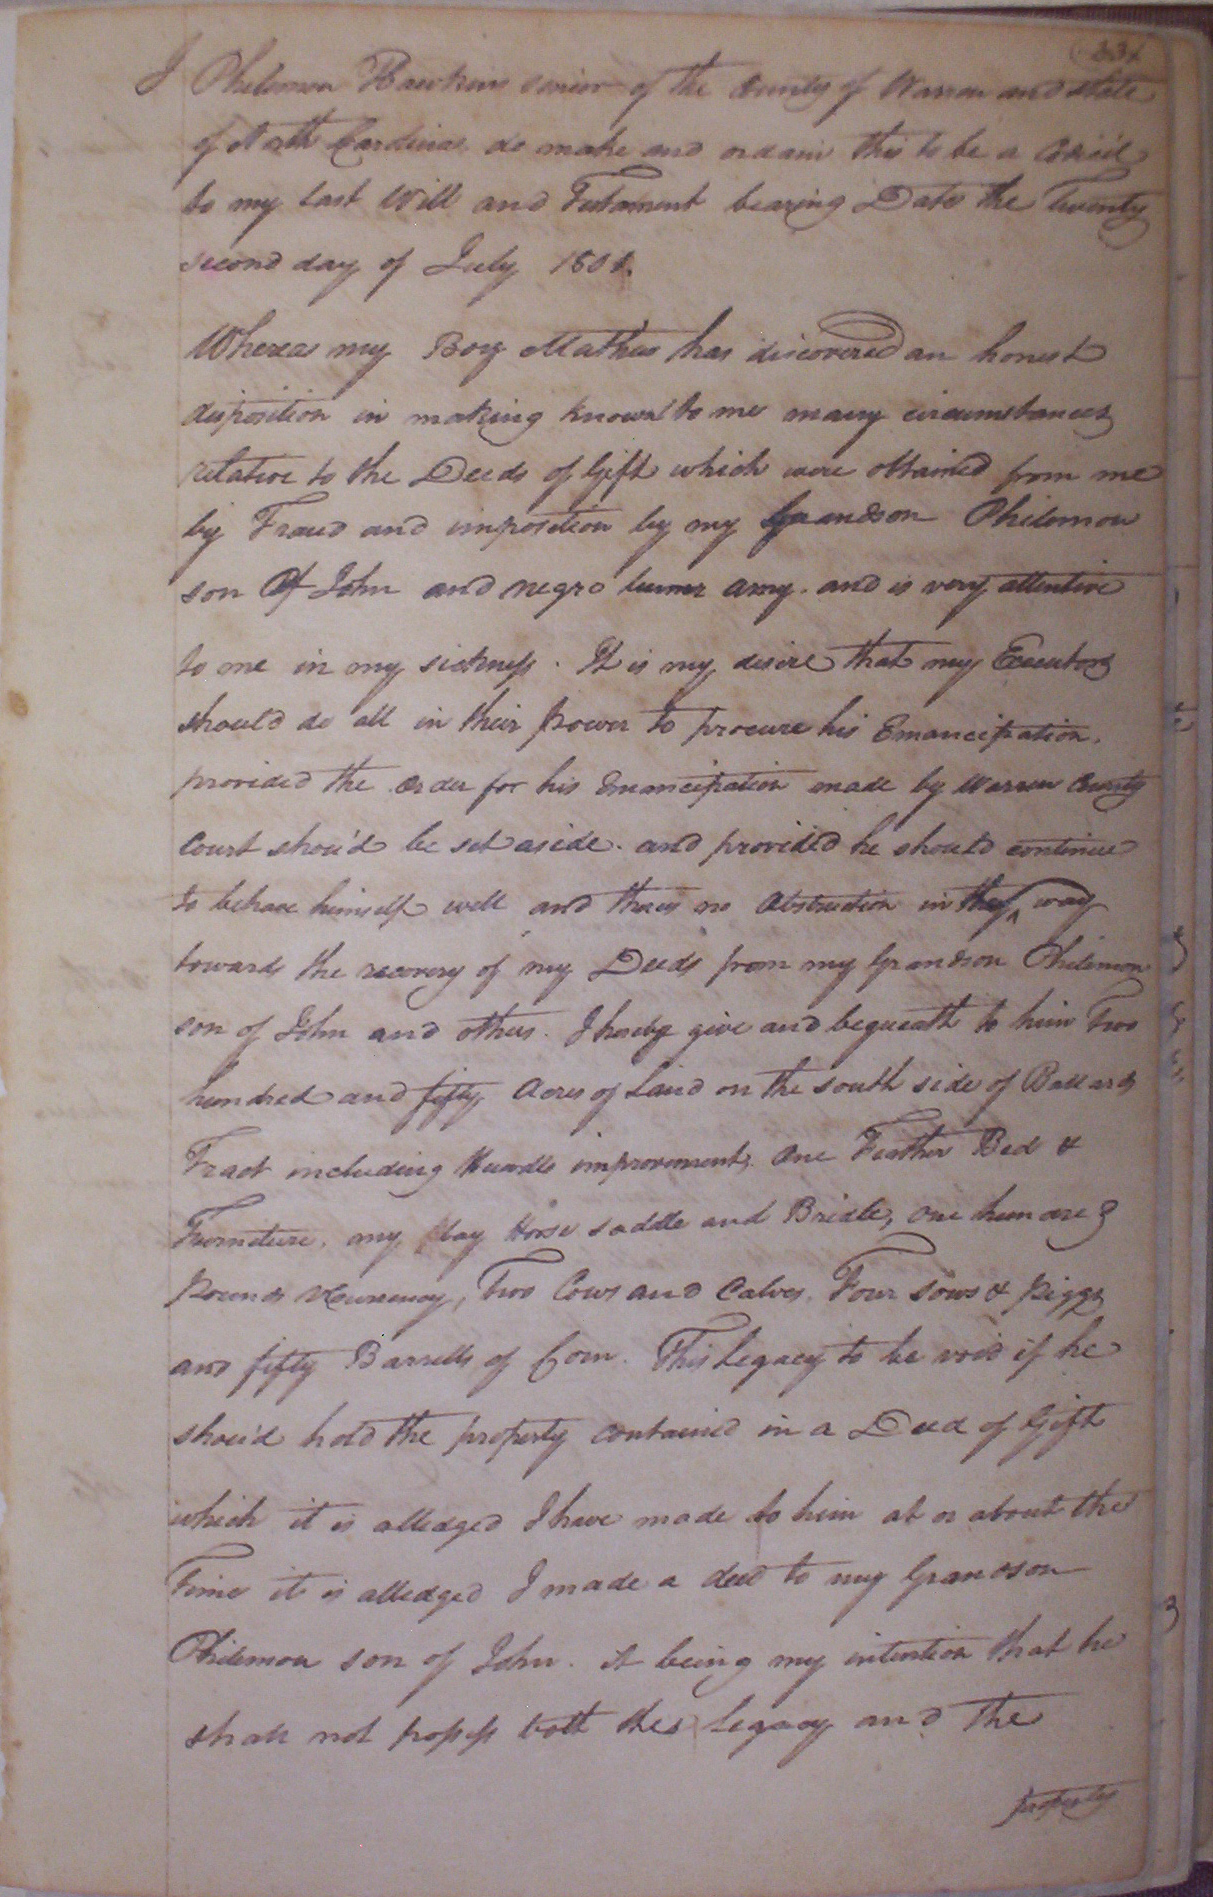 I Philemon Hawkins senior of the County of Warren and State
of North Carolina do make and ordain this to be a Codicil
to my last Will and Testament bearing Date the Twenty
second day of July 1801.
Whereas my Boy Mathew has discovered an honest
disposition in making known to me many circumstances
relative to the Deeds of Gift which were obtained from me
by Fraud and imposition by my Grandson Philemon
son Of John and negro Amy. and is very attentive
to me in my sickness. It is my desire that my Executors
should do all in their power to procure his Emancipation,
provided the Order for his Emancipation made by Warren County
Court shou'd be set aside. and provided he should continue
to behave himself well and throws no Obstruction in the way
towards the recovery of my Deeds from my Grandson Philemon
son of John and others. I hereby give and bequeath to him Two
hundred and fifty Acres of Land on the south side of Ballards
Tract including improvement, One Feather Bed &
Furniture, my Bay Horse saddle and Bridle, One hundred
Pounds Currency, Two Cows and Calves, Four Sows & piggs
and fifty Barrells of Corn. This Legacy to be void if he
shou'd hold the property contained in a Deed of Gift
which it is alledged I have made to him at or about the
Time it is alledged I made a deed to my Grandson
Philemon son of John. it being my intention that he
shall not possess both this Legacy and the
property